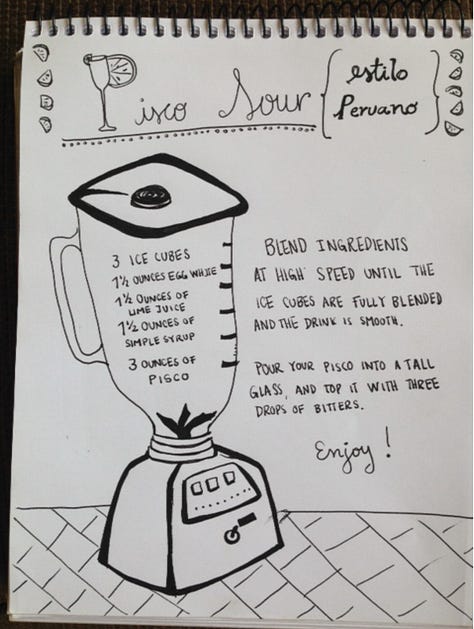 Pisco Sour
estilo
Peruano
3 ICE CUBES
1 1/2 OUNCES EGG WHITE
1 1/2 OUNCES OF
LIME JUICE
1 1/2 OUNCES OF
SIMPLE SYRUP
3 OUNCES OF
PISCO
BLEND INGREDIENTS
AT HIGH SPEED UNTIL THE
ICE CUBES ARE FULLY BLENDED
AND THE DRINK IS SMOOTH.
POUR YOUR PISCO INTO A TALL
GLASS, AND TOP IT WITH THREE
DROPS OF BITTERS.
Enjoy!